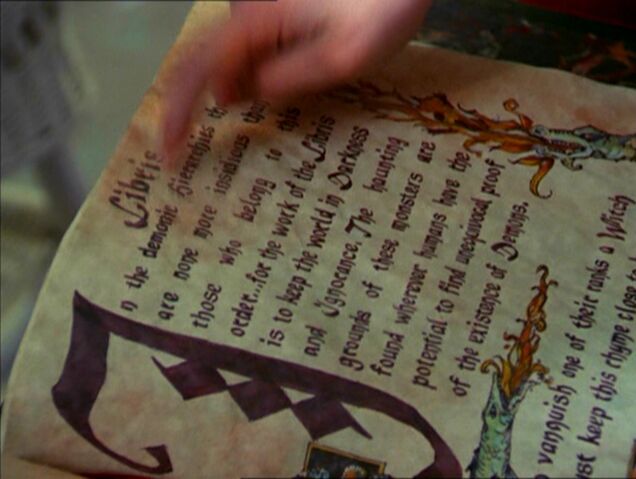 Libris
n the demonic hierarchies th
are none more insidious than
those who belong to this
order...for the work of the Libris
is to keep the world in Darkness
and Ignorance. The haunting
grounds of these monsters are
found wherever humans have the
potential to find unequivocal proof
of the existence of Demons.
vanquish one of their ranks a Witch
ust keep this rhyme close to